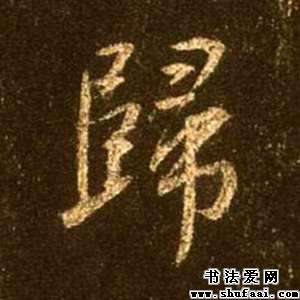 歸
书法爱网
www.shufaai.com